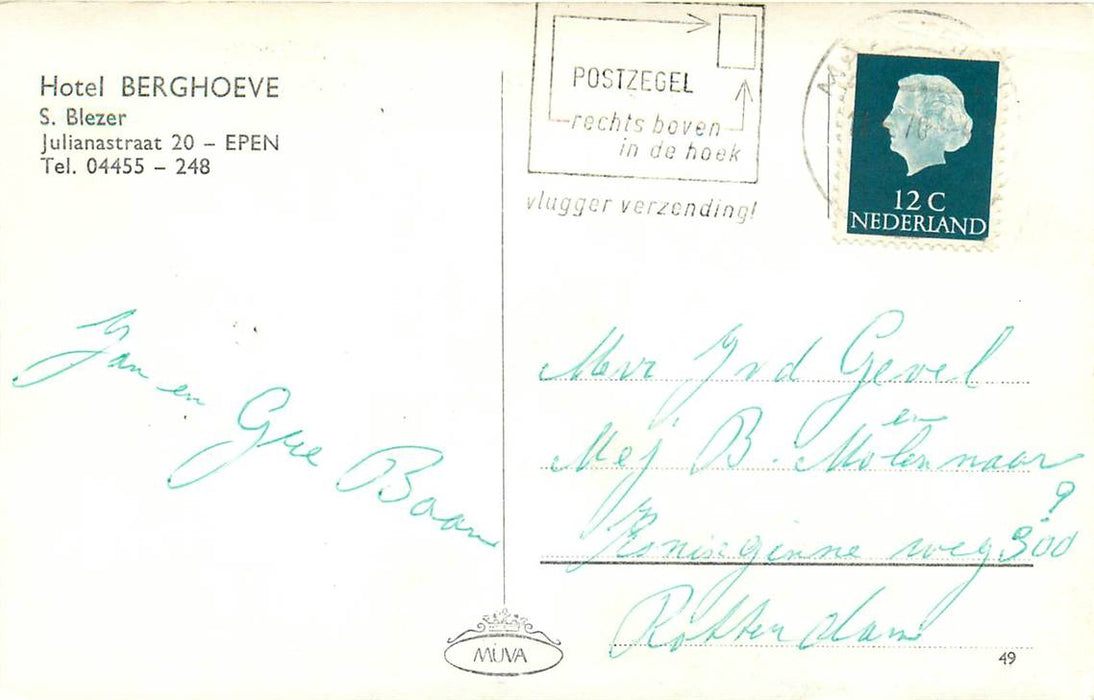 Hotel BERGHOEVE
S. Blezer
Julianastraat 20 – EPEN
Tel. 04455 – 248
POSTZEGEL
rechts boven
in de hoek
vlugger verzending!
12 C
NEDERLAND
Jan en Gre Baan
Mevr J v d Gevel
en
Mej B. Molennaar
?
Koninginne weg 300
Rotterdam
MUVA
49